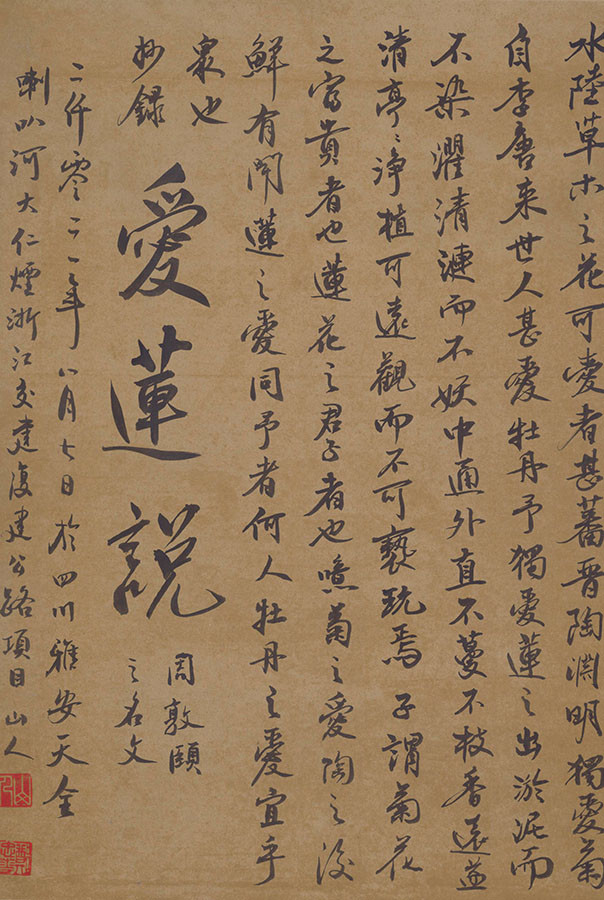 水陸草木之花可愛者甚蕃晋陶淵明獨愛菊
自李唐来世人甚愛牡丹予獨愛蓮之出淤泥而
不染濯清漣而不妖中通外直不蔓不枝香遠益
清亭〻淨植可遠觀而不可褻玩焉予謂菊花
之富貴者也蓮花之君子者也噫菊之愛陶之後
鮮有聞蓮之愛同予者何人牡丹之愛宜乎
衆也
抄録
愛蓮說
周敦頤
之名文
二仟零二一年八月七日於四川雅安天全
喇叭河大仁煙浙江交建復建公路項目山人